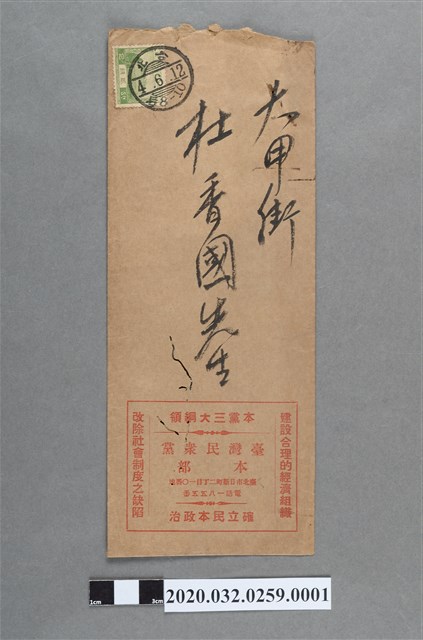 大甲街
杜香國先生
4.6.12
8-10
本黨三大綱領
建設合理的經濟組織
臺灣民眾黨
本部
臺北市日新町二丁目一〇
電話一八五五番
確立民本政治
改除社會制度之缺陷
1cm 3cm
2020.032.0259.0001